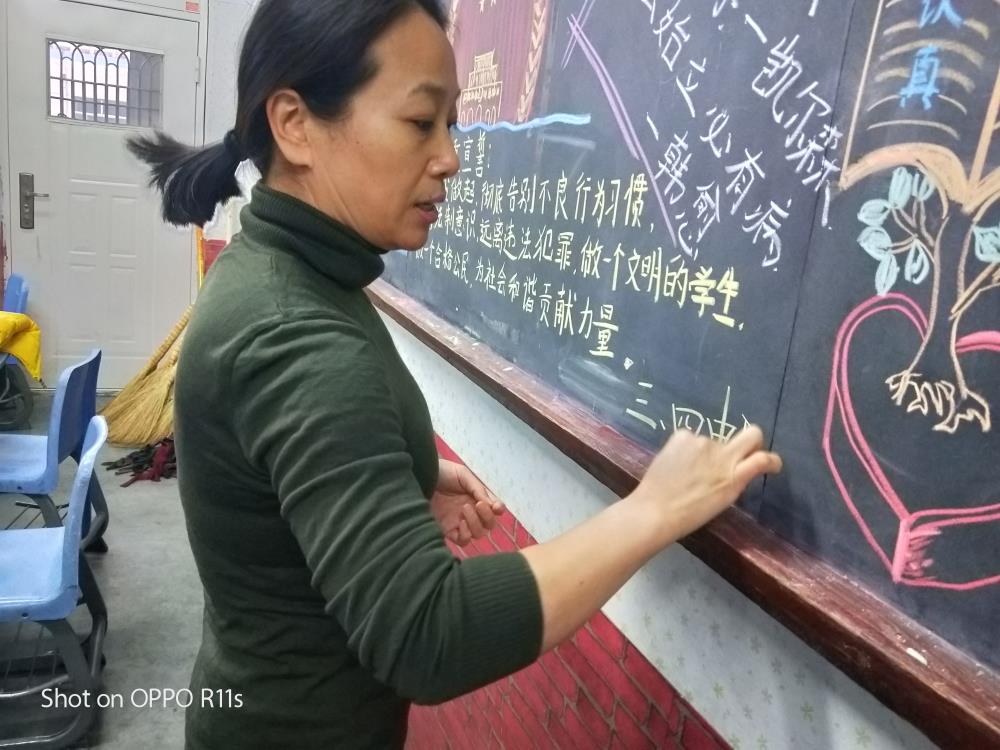 认真
一凯尔森
始立必有病
一韩愈
宣誓:
做起,彻底告别不良行为习惯,
法制意识,远离违法犯罪,做一个文明的学生.
一个合格公民,为社会和谐贡献力量.
三、四中
Shot on OPPO R11s